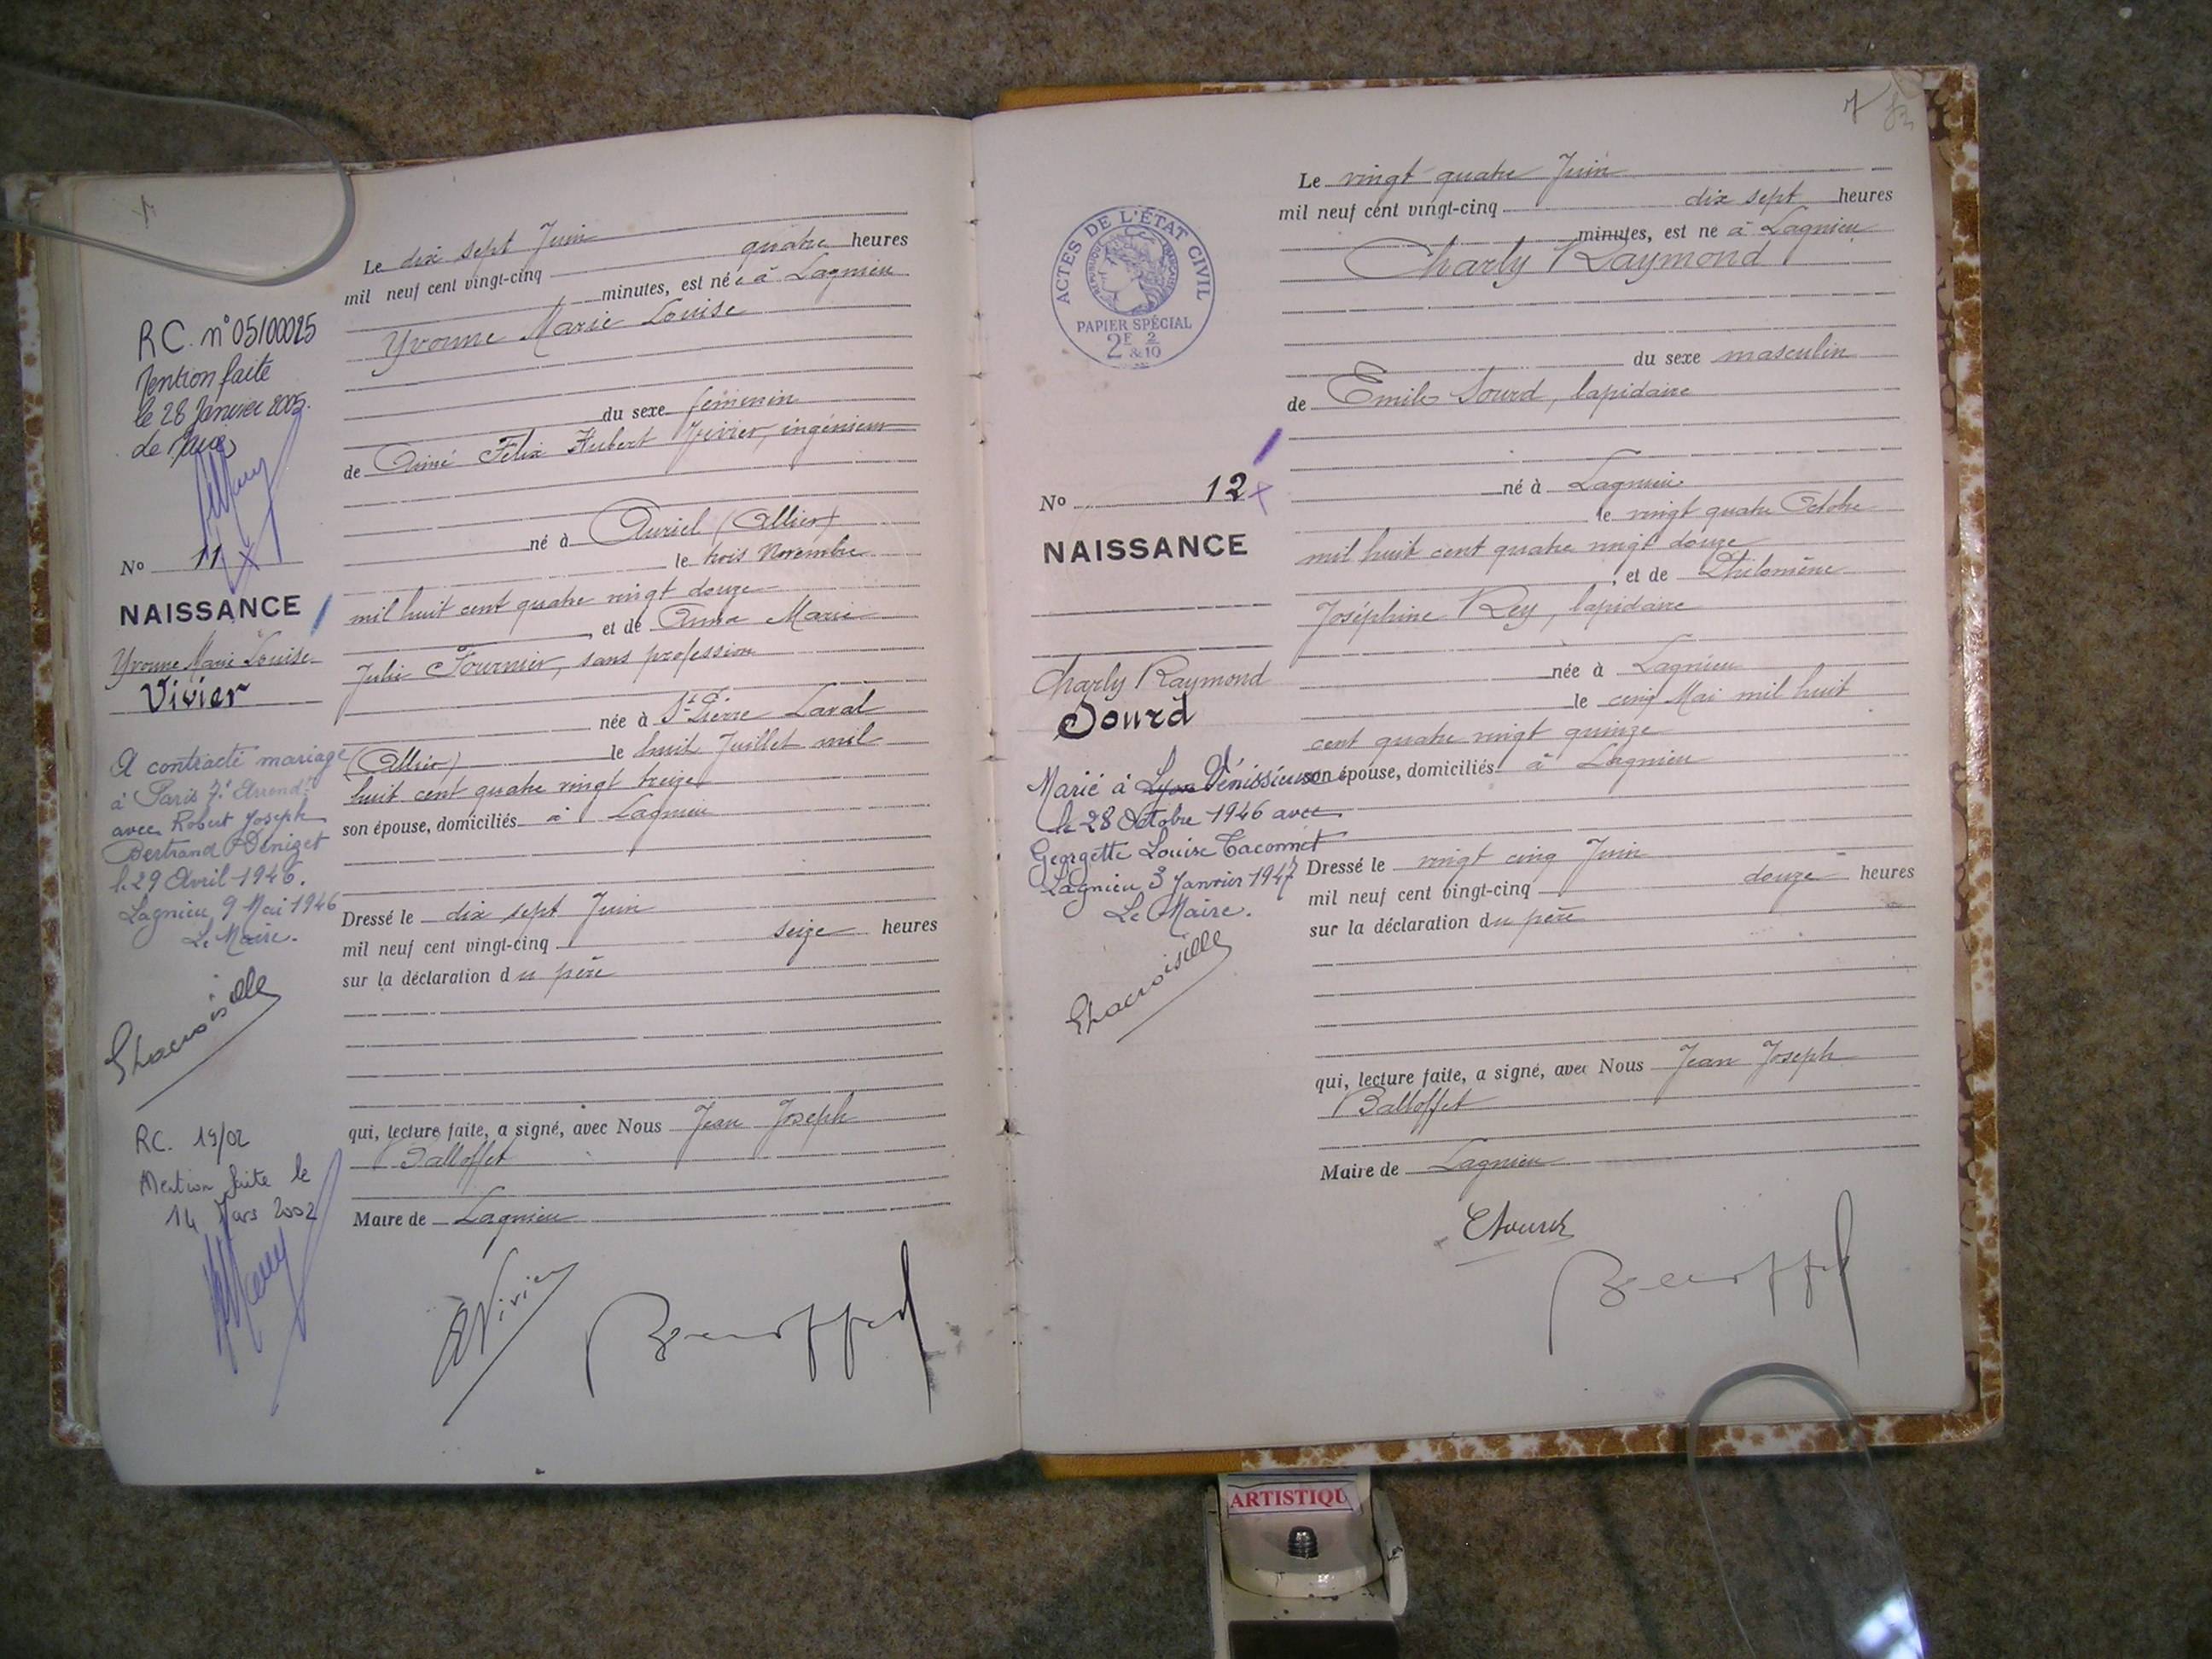 RC. n° 05/00025
Mention faite
le 28 Janvier 2005.
de
No 11
NAISSANCE
Yvonne Marie Louise
Vivier
A contracté mariage
à Paris 7e Arrendt
avec Robert Joseph
Bertrand Déniget
le 29 Avril 1946.
Lagnieu 9 Mai 1946
Le Maire.
RC. 19/02
Mention faite le
14 Mars 2002
Le dix sept Juin
mil neuf cent vingt-cinq quatre heures
minutes, est née à Lagnieu
Yvonne Marie Louise
du sexe féminin
de Aimé Félix Hubert Vivier, ingénieur
né à Auriel (Allier)
le trois Novembre
mil huit cent quatre vingt douze
, et de Anna Marie
Julie Fournier, sans profession
née à St Pierre Laval
(Allier) le huit Juillet mil
huit cent quatre vingt treize
son épouse, domiciliés à Lagnieu
Dressé le dix sept Juin
mil neuf cent vingt-cinq seize heures
sur la déclaration du père
qui, lecture faite, a signé, avec Nous Jean Joseph
Balloffet
Maire de Lagnieu
AVivier
7
ACTES DE L'ÉTAT CIVIL
RÉPUBLIQUE FRANÇAISE
PAPIER SPÉCIAL
2E 2
&10
No 12
NAISSANCE
Charly Raymond
Sourd
Marié à Lyon Vénissieux
le 28 Octobre 1946 avec
Georgette Louise Taconnet
Lagnieu 3 Janvier 1947
Le Maire.
Le vingt quatre Juin
mil neuf cent vingt-cinq dix sept heures
minutes, est né à Lagnieu
Charly Raymond
du sexe masculin
de Emile Sourd, lapidaire
né à Lagnieu
le vingt quatre Octobre
mil huit cent quatre vingt douze
, et de Philomène
Joséphine Rey, lapidaire
née à Lagnieu
le cinq Mai mil huit
cent quatre vingt quinze
son épouse, domiciliés à Lagnieu
Dressé le vingt cinq Juin
mil neuf cent vingt-cinq douze heures
sur la déclaration du père
qui, lecture faite, a signé, avec Nous Jean Joseph
Balloffet
Maire de Lagnieu
ESourd
ARTISTIQU